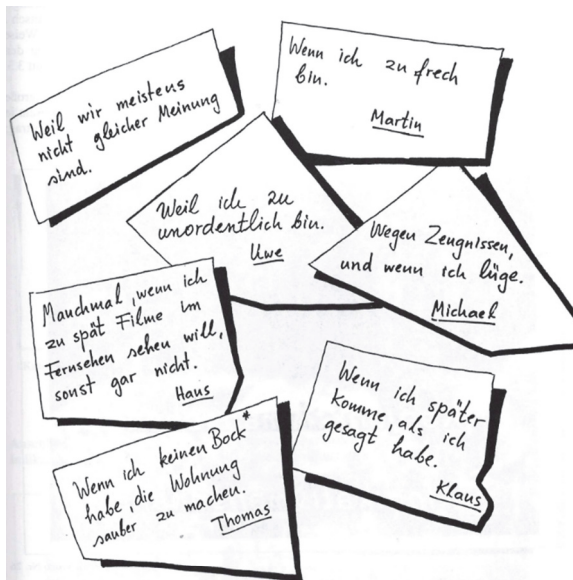 Weil wir meistens
nicht gleicher Meinung
sind.
Wenn ich zu frech
bin.
Martin
Weil ich zu
unordentlich bin.
Uwe
Wegen Zeugnissen,
und wenn ich lüge.
Michael
Manchmal, wenn ich
zu spät Filme im
Fernsehen sehen will,
sonst gar nicht.
Hans
Wenn ich später
komme, als ich
gesagt habe.
Klaus
Wenn ich keinen Bock*
habe, die Wohnung
sauber zu machen.
Thomas